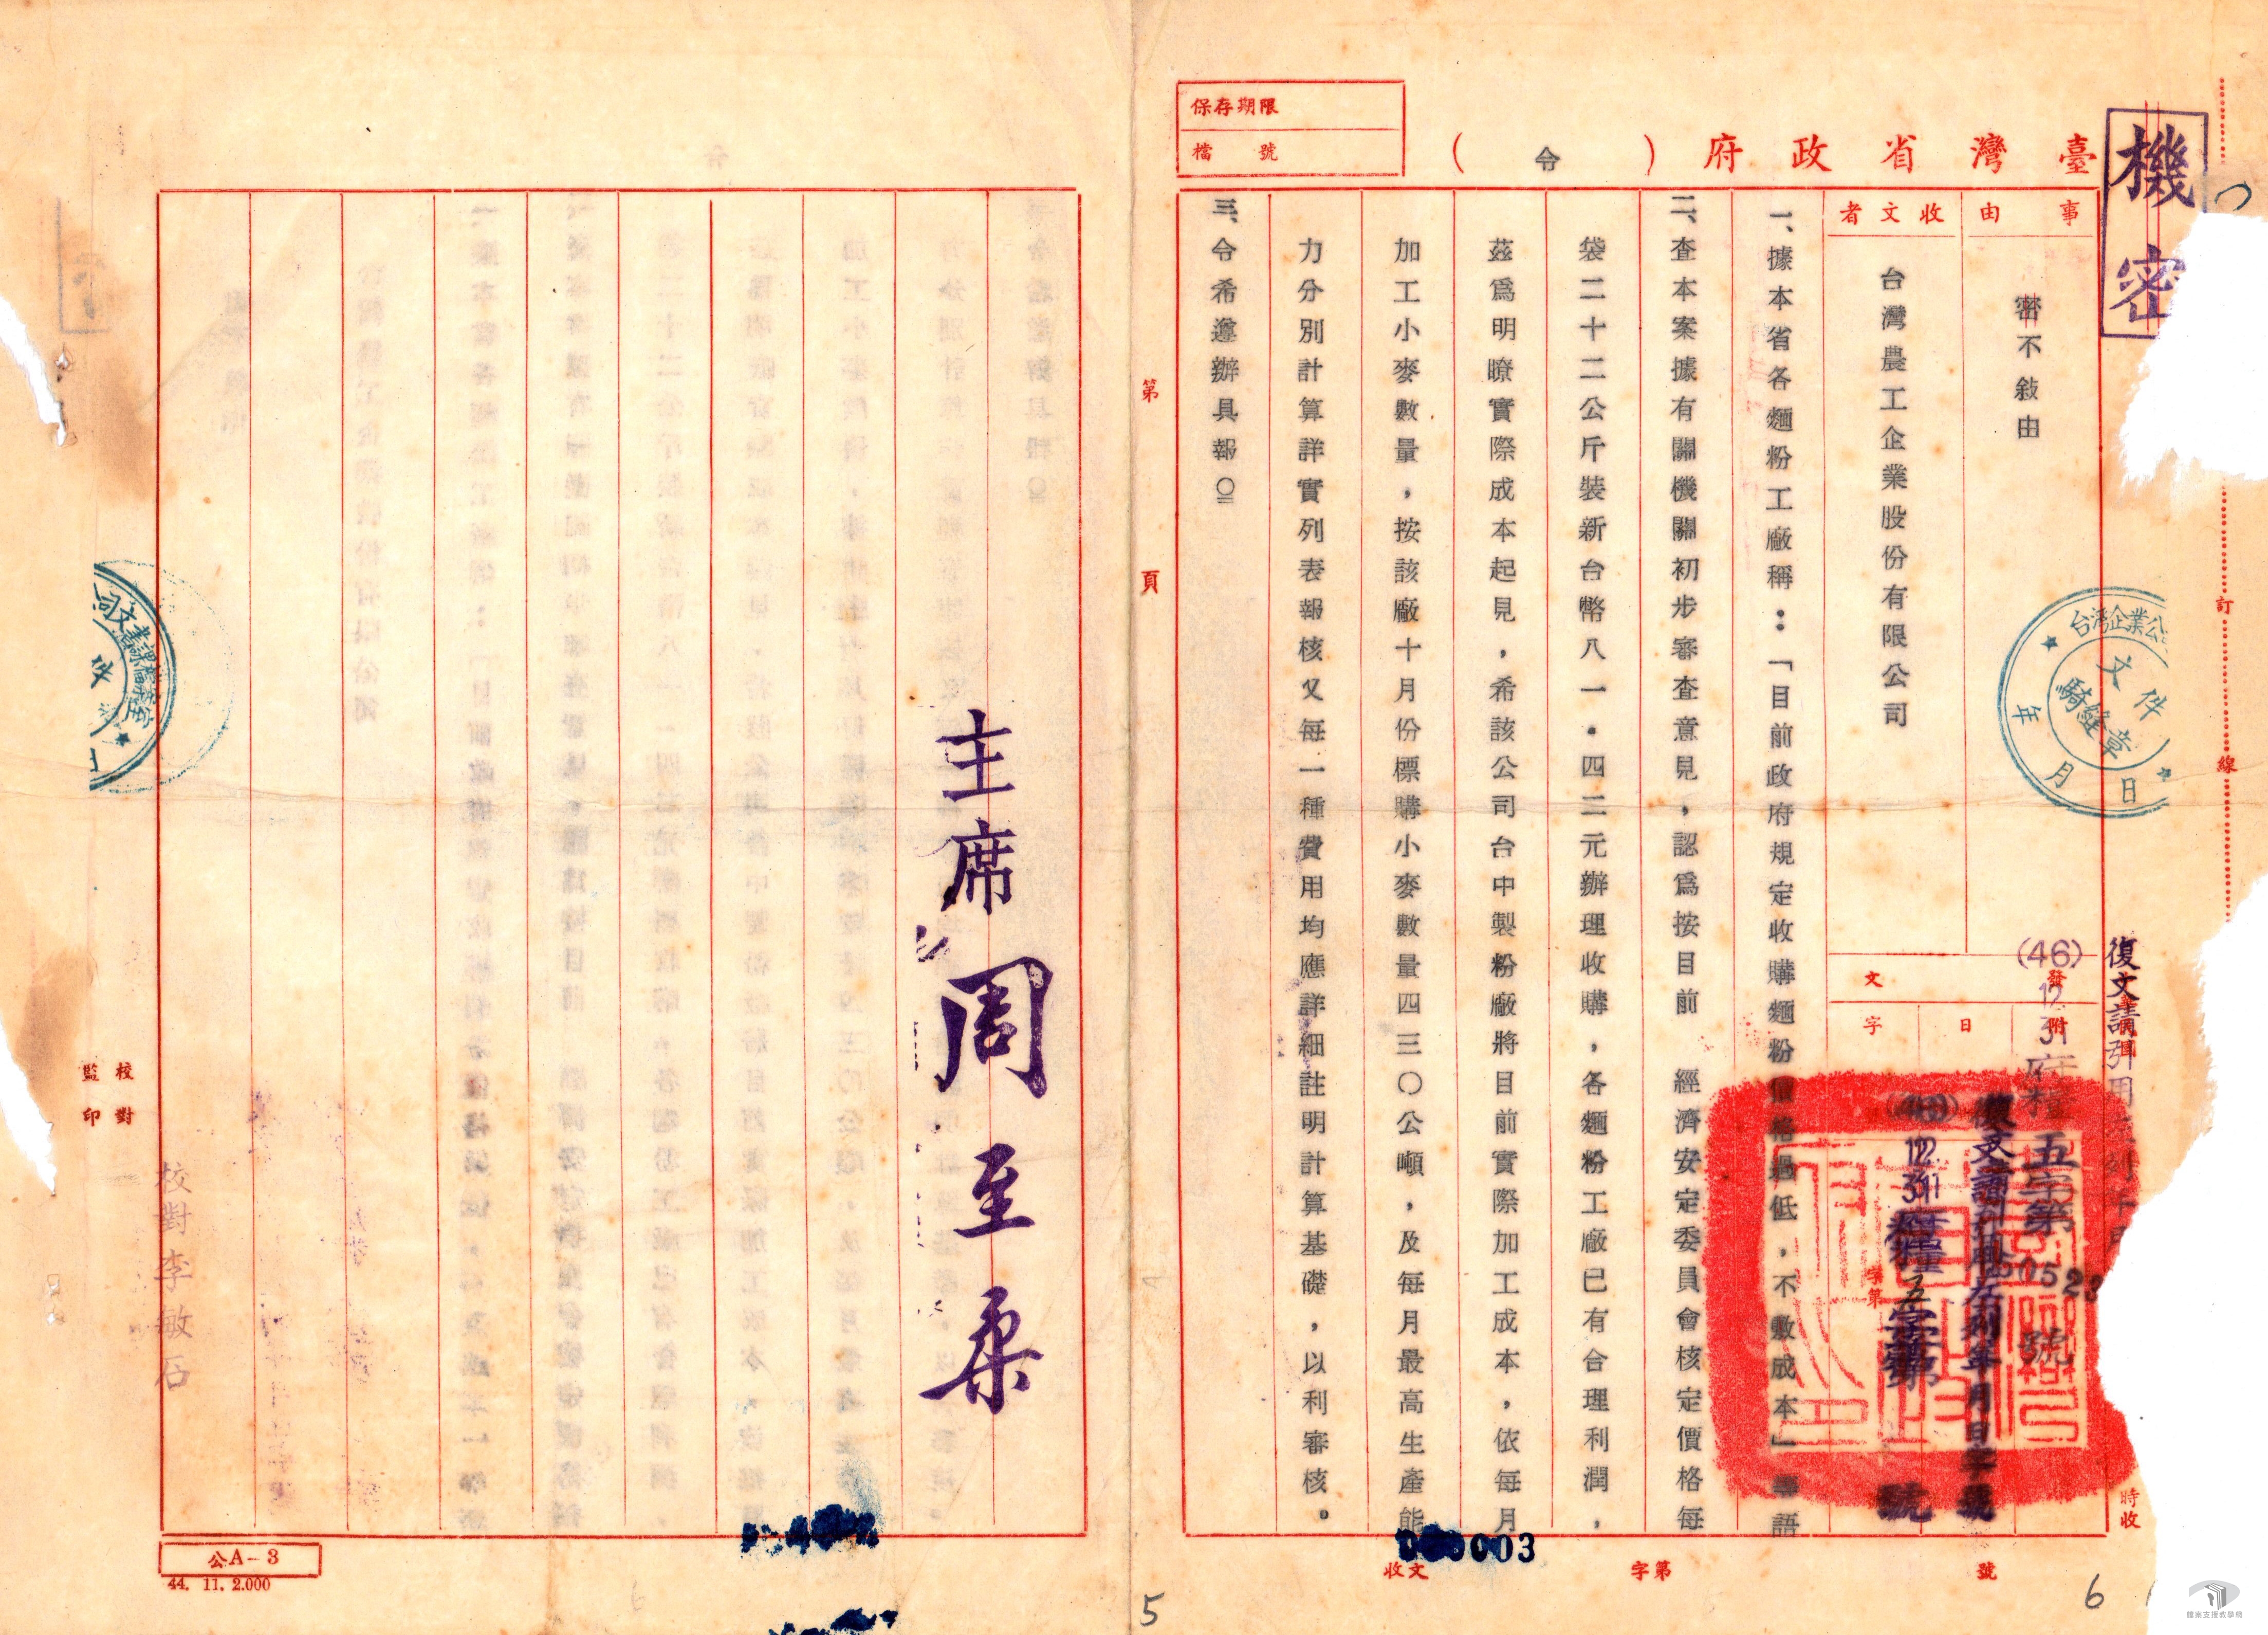 機密
臺灣省政府（令）
保存期限
檔號
事由
密不敍由
收文者
台灣農工企業股份有限公司
發文
附
日
字
(46)
12.
31
府糧五字第
號
復文請引用
一、據本省各麵粉工廠稱：「目前政府規定收購麵粉價格過低，不敷成本」等語
二、查本案據有關機關初步審查意見，認爲按目前　經濟安定委員會核定價格每
袋二十二公斤裝新台幣八一．四二元辦理收購，各麵粉工廠已有合理利潤，
茲爲明瞭實際成本起見，希該公司台中製粉廠將目前實際加工成本，依每月
加工小麥數量，按該廠十月份標購小麥數量四三〇公噸，及每月最高生產能
力分別計算詳實列表報核又每一種費用均應詳細註明計算基礎，以利審核。
三、令希遵辦具報〇
主席周至柔
第　頁
訂
線
台灣企業公
文件
騎縫章
年月日
司文書課檔案室
件
校對
監印
校對李敏石
時收
收文
字第
號
003
公A－3
44. 11. 2.000
5
6
檔案支援教學網